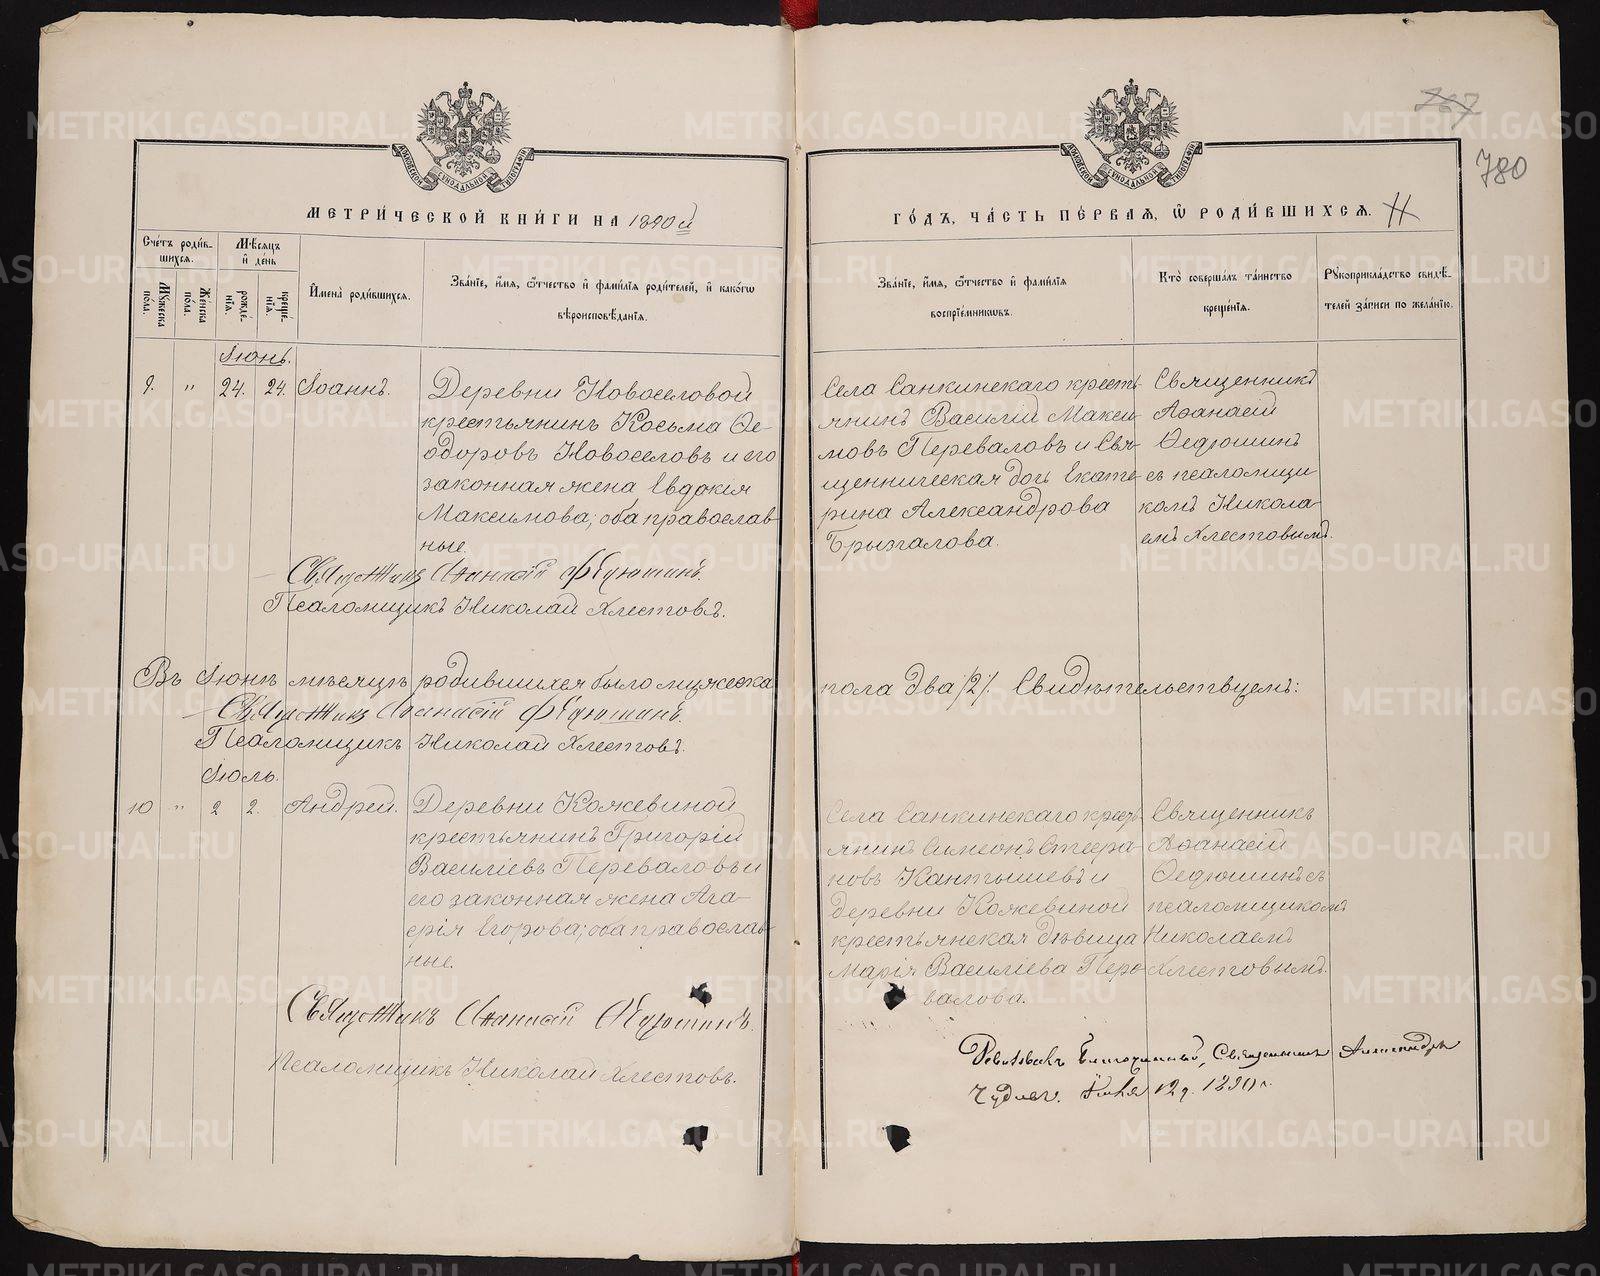 767
780
МОСКОВСКОЙ СѴНОДАЛЬНОЙ ТИПОГРАФІИ
МОСКОВСКОЙ СѴНОДАЛЬНОЙ ТИПОГРАФІИ
МЕТРИ́ЧЕСКОЙ КНИ́ГИ НА 1890 й
ГО́ДЪ, ЧА́СТЬ ПЕ́РВАЯ, Ѿ РОДИ́ВШИХСЯ.
Сче́тъ роди́в-
шихся.
Му́жеска
по́ла.
Же́нска
по́ла.
Мѣ́сяцъ
и҆ де́нь
рожде́-
нїя.
креще́-
нїя.
И҆мена̀ роди́вшихся.
Зва́нїе, и҆́мя, ѻ҆́тчество и҆ фами́лїя роди́телей, и҆ како́гѡ
вѣроисповѣ́данїя.
Зва́нїе, и҆́мя, ѻ҆́тчество и҆ фами́лїя
воспрїе́мникѡвъ.
Кто̀ соверша́лъ та́инство
креще́нїя.
Рꙋкоприкла́дство свидѣ́-
телей за́писи по жела́нїю.
Іюнь.
9. " 24. 24. Іоаннъ.
Деревни Новоселовой
крестьянинъ Косьма Ѳе-
одоровъ Новоселовъ и его
законная жена Евдокія
Максимова; оба православ-
ные.
Села Санкинскаго кресть-
янинъ Василій Макси-
мовъ Переваловъ и Свя-
щенническая дочь Екате-
рина Александрова
Брызгалова.
Священникъ
Аѳанасій
Ѳедюшинъ
съ псаломщи-
комъ Никола-
емъ Хлестовымъ.
Священникъ Аѳанасій Ѳедюшинъ.
Псаломщикъ Николай Хлестовъ.
Въ Іюнѣ мѣсяцѣ родившихся было мужеска
пола два /2/. Свидѣтельствуемъ:
Священникъ Аѳанасій Ѳедюшинъ.
Псаломщикъ Николай Хлестовъ.
Іюль.
10 " 2 2. Андрей.
Деревни Кожевиной
крестьянинъ Григорій
Василіевъ Переваловъ и
его законная жена Ага-
ѳія Егорова; оба православ-
ные.
Села Санкинскаго кресть-
янинъ Симеонъ Стефа-
новъ Кантышевъ и
деревни Кожевиной
крестьянская дѣвица
Марія Василіева Пере-
валова.
Священникъ
Аѳанасій
Ѳедюшинъ съ
псаломщикомъ
Николаемъ
Хлестовымъ.
Священникъ Аѳанасій Ѳедюшинъ.
Псаломщикъ Николай Хлестовъ.
Благочинный, Священникъ Александръ
12 д. 1890 г.
METRIKI.GASO-URAL.RU